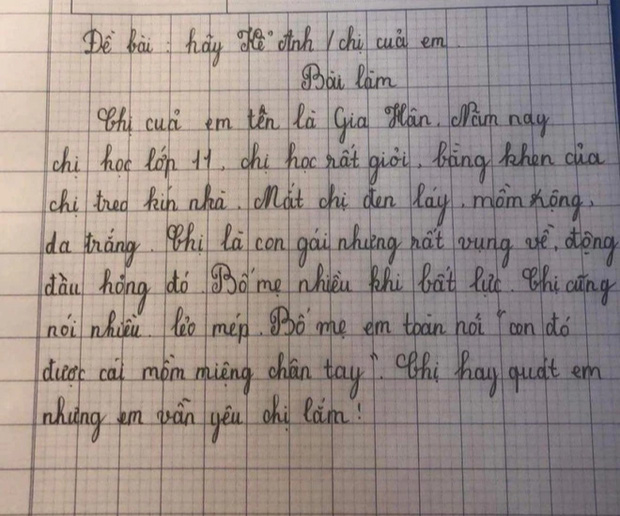 Đề bài : hãy kể Anh / chị cuả em.
Bài làm
Chị cuả em tên là Gia Hân. Năm nay
chị học lớp 11, chị học rất giỏi, bằng khen của
chị treo kín nhà. Mắt chị đen láy, mồm rộng,
da trắng. Chị là con gái nhưng rất vụng về, động
đâu hỏng đó. Bố mẹ nhiều khi bất lực. Chị cũng
nói nhiều, lẻo mép. Bố mẹ em toàn nói "con đó
được cái mồm miệng chân tay". Chị hay quát em
nhưng em vẫn yêu chị lắm!